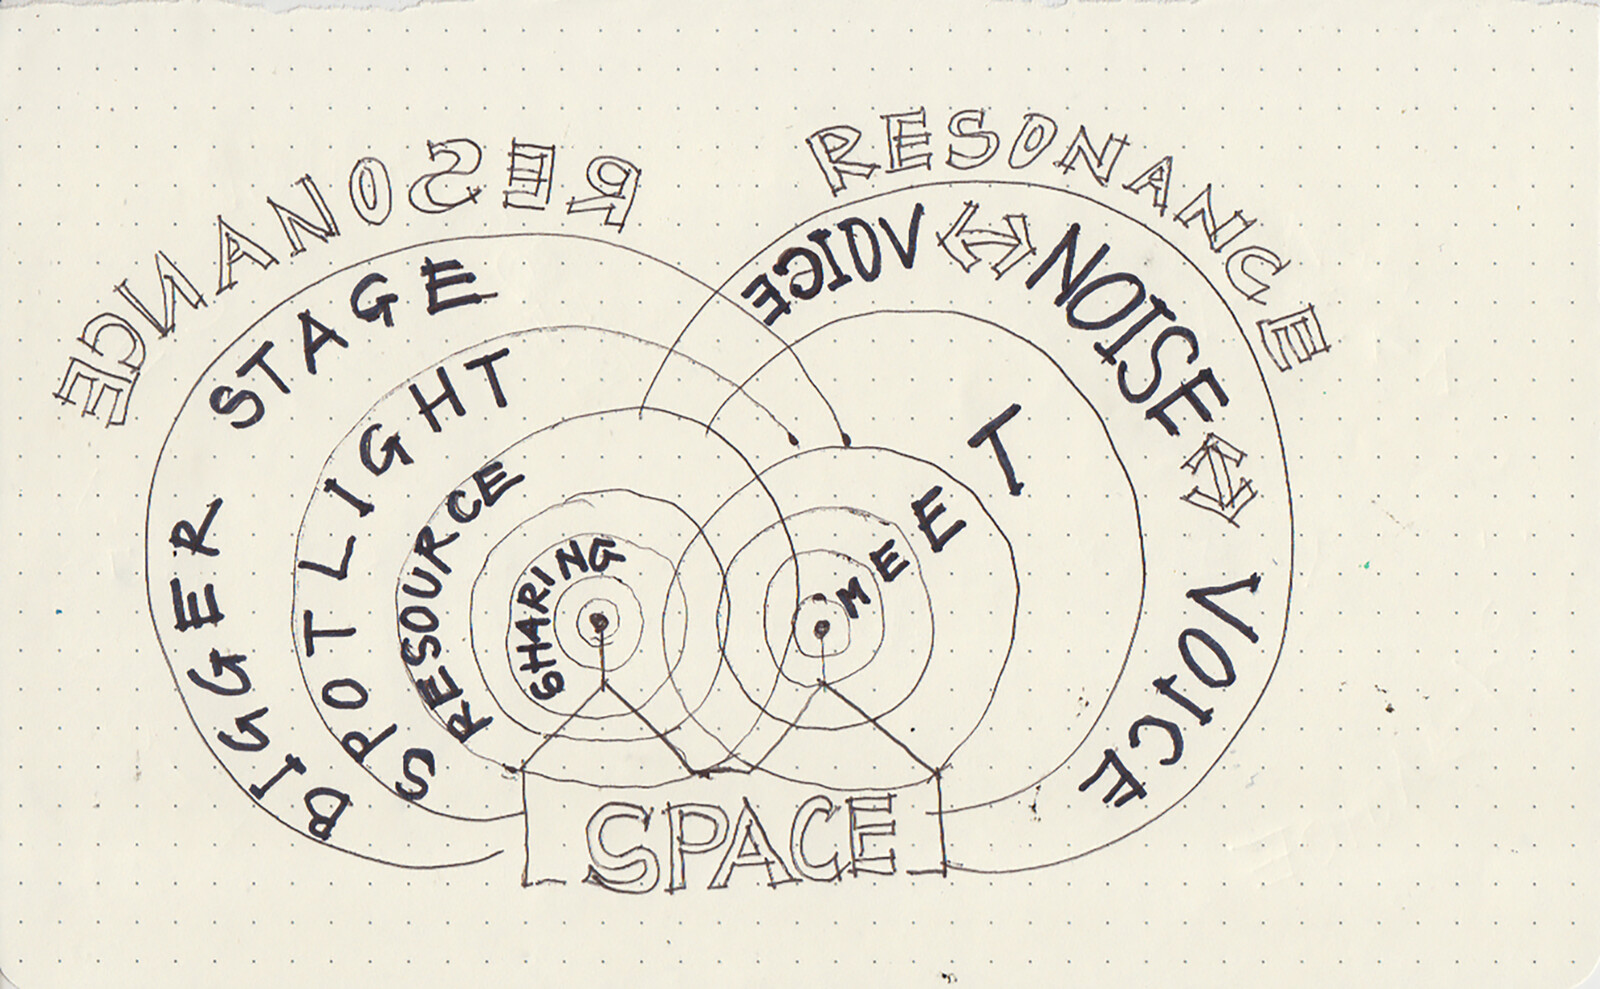 RESONANCE
RESONANCE
BIGGER STAGE
SPOTLIGHT
RESOURCE
SHARING
MEET
VOICE ↔ NOISE ↔ VOICE
SPACE